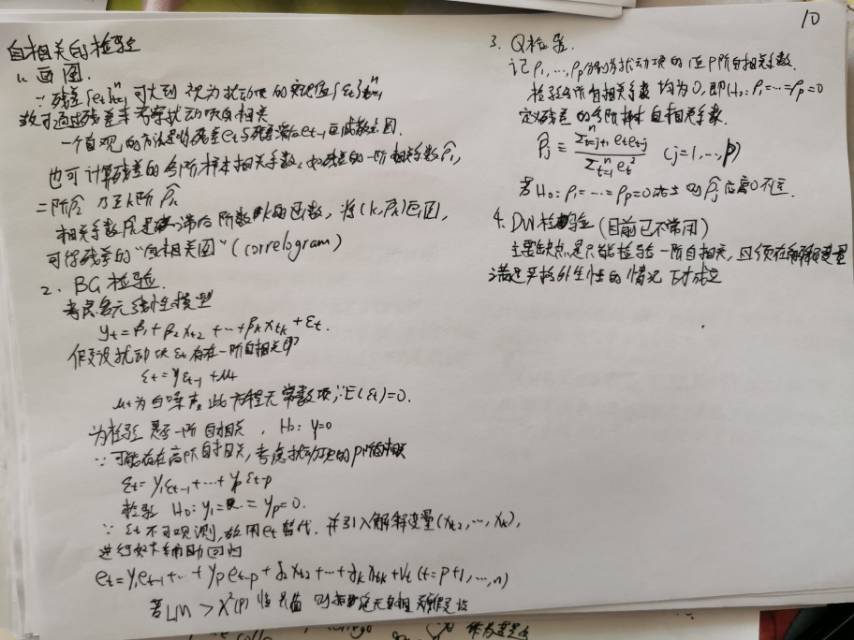 自相关的检验
1. 画图.
∵残差{et}ⁿt=1 可大致视为扰动项的实现值{εt}ⁿt=1
故可通过残差来考察扰动项自相关
一个直观的方法是将残差et与残差滞后et-1画成散点图.
也可计算残差的各阶样本相关系数,如残差的一阶相关系数ρ̂1,
二阶ρ̂2 乃至k阶ρ̂k
相关系数ρ̂k是滞后阶数k的函数,将(k,ρ̂k)画图,
可得残差的"自相关图"(correlogram)
2. BG检验.
考虑多元线性模型
yt=β1+β2xt2+…+βkxtk+εt.
假设扰动项εt存在一阶自相关即
εt=γεt-1+μt
μt为白噪声,此方程无常数项,∵E(εt)=0.
为检验是否一阶自相关, H0: γ=0
∵可能存在高阶自相关,考虑扰动项的p阶自相关
εt=γ1εt-1+…+γpεt-p
检验 H0: γ1=…=γp=0.
∵ εt不可观测,故用et替代.并引入解释变量(xt2,…,xtk),
进行如下辅助回归
et=γ1et-1+…+γpet-p+δ2xt2+…+δkxtk+vt (t=p+1,…,n)
若LM > χ²(p) 临界值 则 无自相关
10
3. Q检验.
记ρ1,…,ρp分别为扰动项的1至p阶自相关系数.
检验各阶自相关系数均为0,即H0: ρ1=…=ρp=0
定义残差的各阶样本自相关系数.
ρ̂j ≡ Σⁿt=j+1 etet-j / Σⁿt=1 et² (j=1,…,p)
若H0: ρ1=…=ρp=0成立 则ρ̂j 应离0不远.
4. DW检验(目前已不常用)
主要缺点是只能检验一阶自相关,且须在解释变量
满足严格外生性的情况下才成立